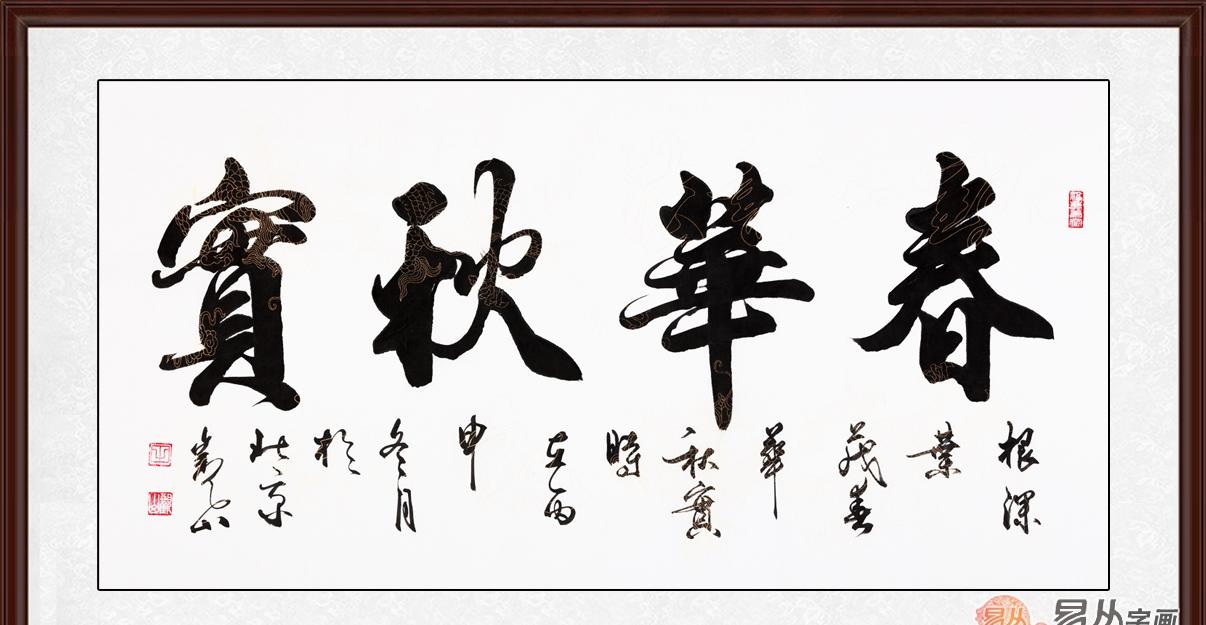 春華秋實
根深
葉
茂春
華
秋實
時
在丙
申
冬月
於
北京
易从
易从字画